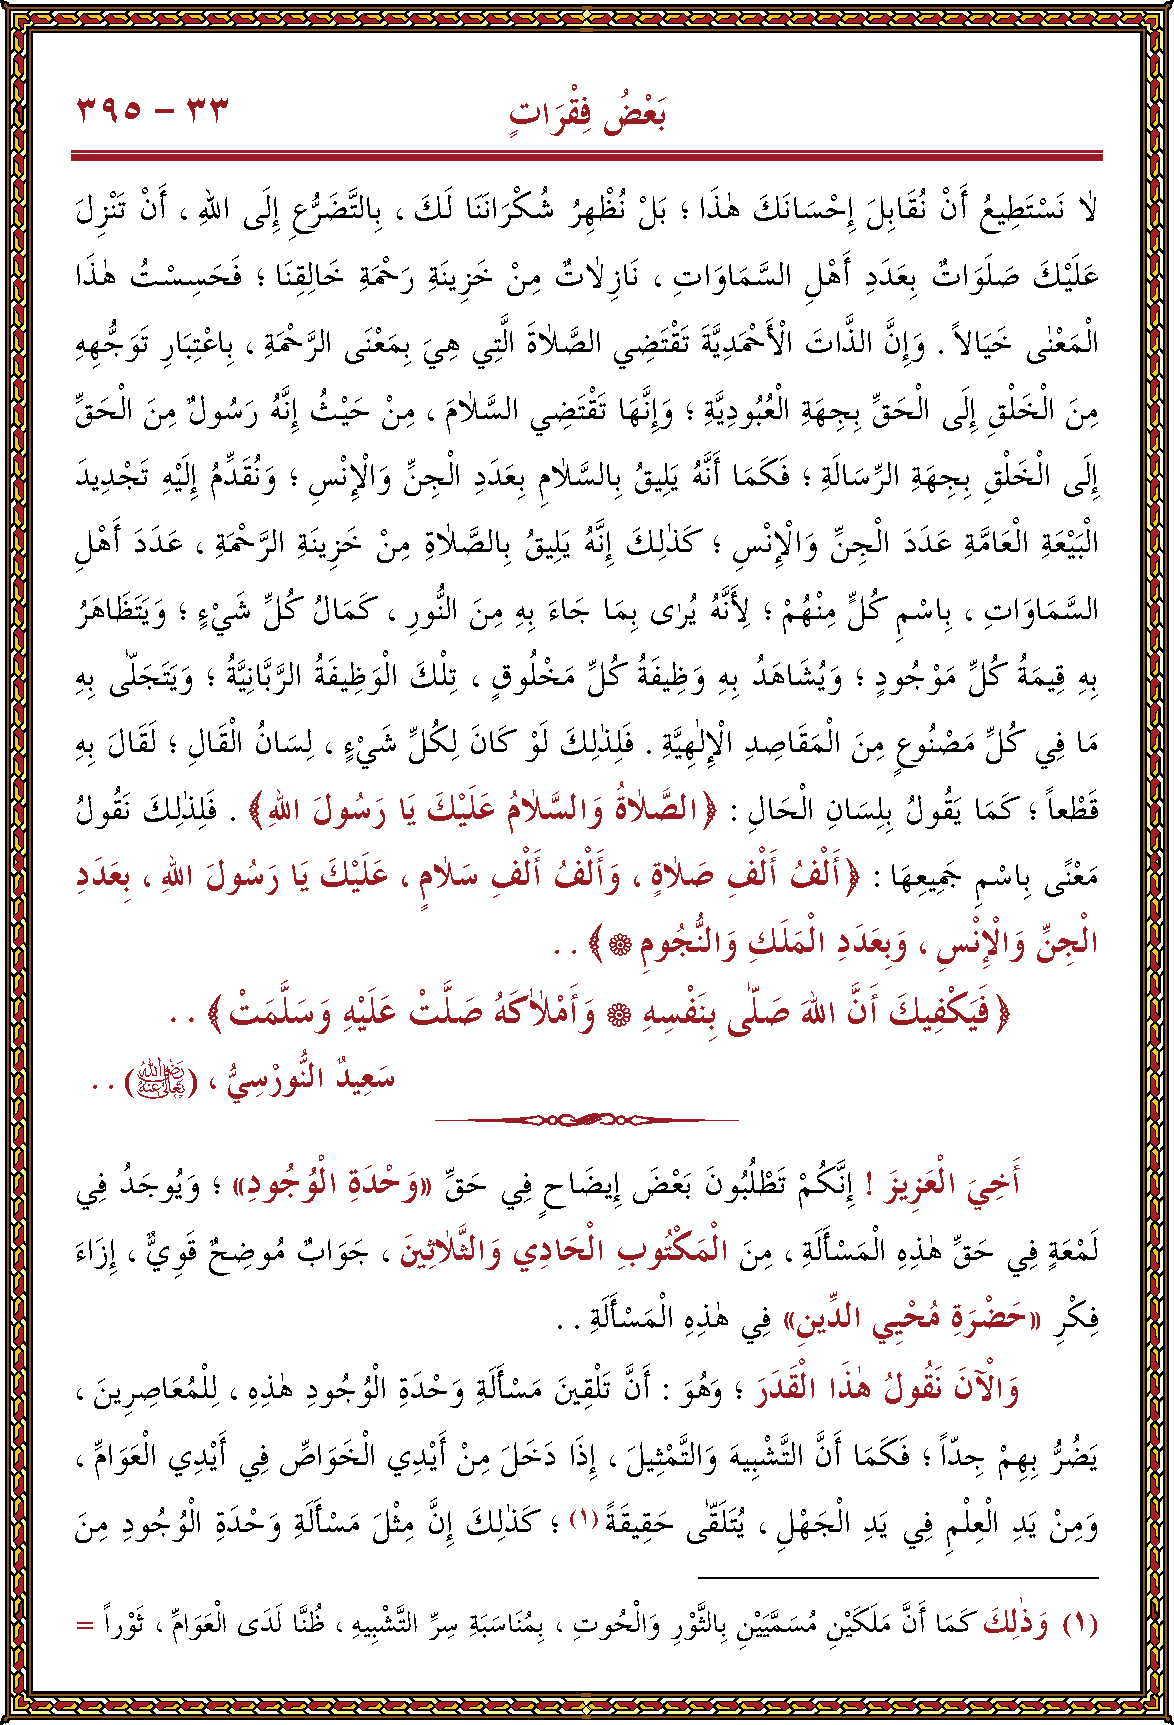 بَعْضُ فِقْرَاتٍ ٣٣ - ٣٩٥
لاٰ نَسْتَطِيعُ أَنْ نُقَابِلَ إِحْسَانَكَ هٰذَا ؛ بَلْ نُظْهِرُ شُكْرَانَنَا لَكَ ، بِالتَّضَرُّعِ إِلَى اللهِ ، أَنْ تَنْزِلَ
عَلَيْكَ صَلَوَاتٌ بِعَدَدِ أَهْلِ السَّمَاوَاتِ ، نَازِلاٰتٌ مِنْ خَزِينَةِ رَحْمَةِ خَالِقِنَا ؛ فَحَسِسْتُ هٰذَا
الْمَعْنٰى خَيَالاً . وَإِنَّ الذَّاتَ الْأَحْمَدِيَّةَ تَقْتَضِي الصَّلاٰةَ الَّتِي هِيَ بِمَعْنَى الرَّحْمَةِ ، بِاعْتِبَارِ تَوَجُّهِهِ
مِنَ الْخَلْقِ إِلَى الْحَقِّ بِجِهَةِ الْعُبُودِيَّةِ ؛ وَإِنَّهَا تَقْتَضِي السَّلاٰمَ ، مِنْ حَيْثُ إِنَّهُ رَسُولٌ مِنَ الْحَقِّ
إِلَى الْخَلْقِ بِجِهَةِ الرِّسَالَةِ ؛ فَكَمَا أَنَّهُ يَلِيقُ بِالسَّلاٰمِ بِعَدَدِ الْجِنِّ وَالْإِنْسِ ؛ وَنُقَدِّمُ إِلَيْهِ تَجْدِيدَ
الْبَيْعَةِ الْعَامَّةِ عَدَدَ الْجِنِّ وَالْإِنْسِ ؛ كَذٰلِكَ إِنَّهُ يَلِيقُ بِالصَّلاٰةِ مِنْ خَزِينَةِ الرَّحْمَةِ ، عَدَدَ أَهْلِ
السَّمَاوَاتِ ، بِاسْمِ كُلٍّ مِنْهُمْ ؛ لِأَنَّهُ يُرٰى بِمَا جَاءَ بِهِ مِنَ النُّورِ ، كَمَالُ كُلِّ شَيْءٍ ؛ وَيَتَظَاهَرُ
بِهِ قِيمَةُ كُلِّ مَوْجُودٍ ؛ وَيُشَاهَدُ بِهِ وَظِيفَةُ كُلِّ مَخْلُوقٍ ، تِلْكَ الْوَظِيفَةُ الرَّبَّانِيَّةُ ؛ وَيَتَجَلّٰى بِهِ
مَا فِي كُلِّ مَصْنُوعٍ مِنَ الْمَقَاصِدِ الْإِلٰهِيَّةِ . فَلِذٰلِكَ لَوْ كَانَ لِكُلِّ شَيْءٍ ، لِسَانُ الْقَالِ ؛ لَقَالَ بِهِ
قَطْعاً ؛ كَمَا يَقُولُ بِلِسَانِ الْحَالِ : ﴿الصَّلاٰةُ وَالسَّلاٰمُ عَلَيْكَ يَا رَسُولَ اللهِ﴾ . فَلِذٰلِكَ نَقُولُ
مَعْنًى بِاسْمِ جَمِيعِهَا : ﴿أَلْفُ أَلْفِ صَلاٰةٍ ، وَأَلْفُ أَلْفِ سَلاٰمٍ ، عَلَيْكَ يَا رَسُولَ اللهِ ، بِعَدَدِ
الْجِنِّ وَالْإِنْسِ ، وَبِعَدَدِ الْمَلَكِ وَالنُّجُومِ ۞﴾ . .
﴿فَيَكْفِيكَ أَنَّ اللهَ صَلّٰى بِنَفْسِهِ ۞ وَأَمْلاٰكَهُ صَلَّتْ عَلَيْهِ وَسَلَّمَتْ﴾ . .
سَعِيدٌ النُّورْسِيُّ ، (رضي الله تعالى عنه) . .
أَخِيَ الْعَزِيزَ ! إِنَّكُمْ تَطْلُبُونَ بَعْضَ إِيضَاحٍ فِي حَقِّ «وَحْدَةِ الْوُجُودِ» ؛ وَيُوجَدُ فِي
لَمْعَةٍ فِي حَقِّ هٰذِهِ الْمَسْأَلَةِ ، مِنَ الْمَكْتُوبِ الْحَادِي وَالثَّلاٰثِينَ ، جَوَابٌ مُوضِحٌ قَوِيٌّ ، إِزَاءَ
فِكْرِ «حَضْرَةِ مُحْيِي الدِّينِ» فِي هٰذِهِ الْمَسْأَلَةِ . .
وَالْآنَ نَقُولُ هٰذَا الْقَدَرَ ؛ وَهُوَ : أَنَّ تَلْقِينَ مَسْأَلَةِ وَحْدَةِ الْوُجُودِ هٰذِهِ ، لِلْمُعَاصِرِينَ ،
يَضُرُّ بِهِمْ جِدّاً ؛ فَكَمَا أَنَّ التَّشْبِيهَ وَالتَّمْثِيلَ ، إِذَا دَخَلَ مِنْ أَيْدِي الْخَوَاصِّ فِي أَيْدِي الْعَوَامِّ ،
وَمِنْ يَدِ الْعِلْمِ فِي يَدِ الْجَهْلِ ، يُتَلَقّٰى حَقِيقَةً (١) ؛ كَذٰلِكَ إِنَّ مِثْلَ مَسْأَلَةِ وَحْدَةِ الْوُجُودِ مِنَ
(١) وَذٰلِكَ كَمَا أَنَّ مَلَكَيْنِ مُسَمَّيَيْنِ بِالثَّوْرِ وَالْحُوتِ ، بِمُنَاسَبَةِ سِرِّ التَّشْبِيهِ ، ظُنَّا لَدَى الْعَوَامِّ ، ثَوْراً =